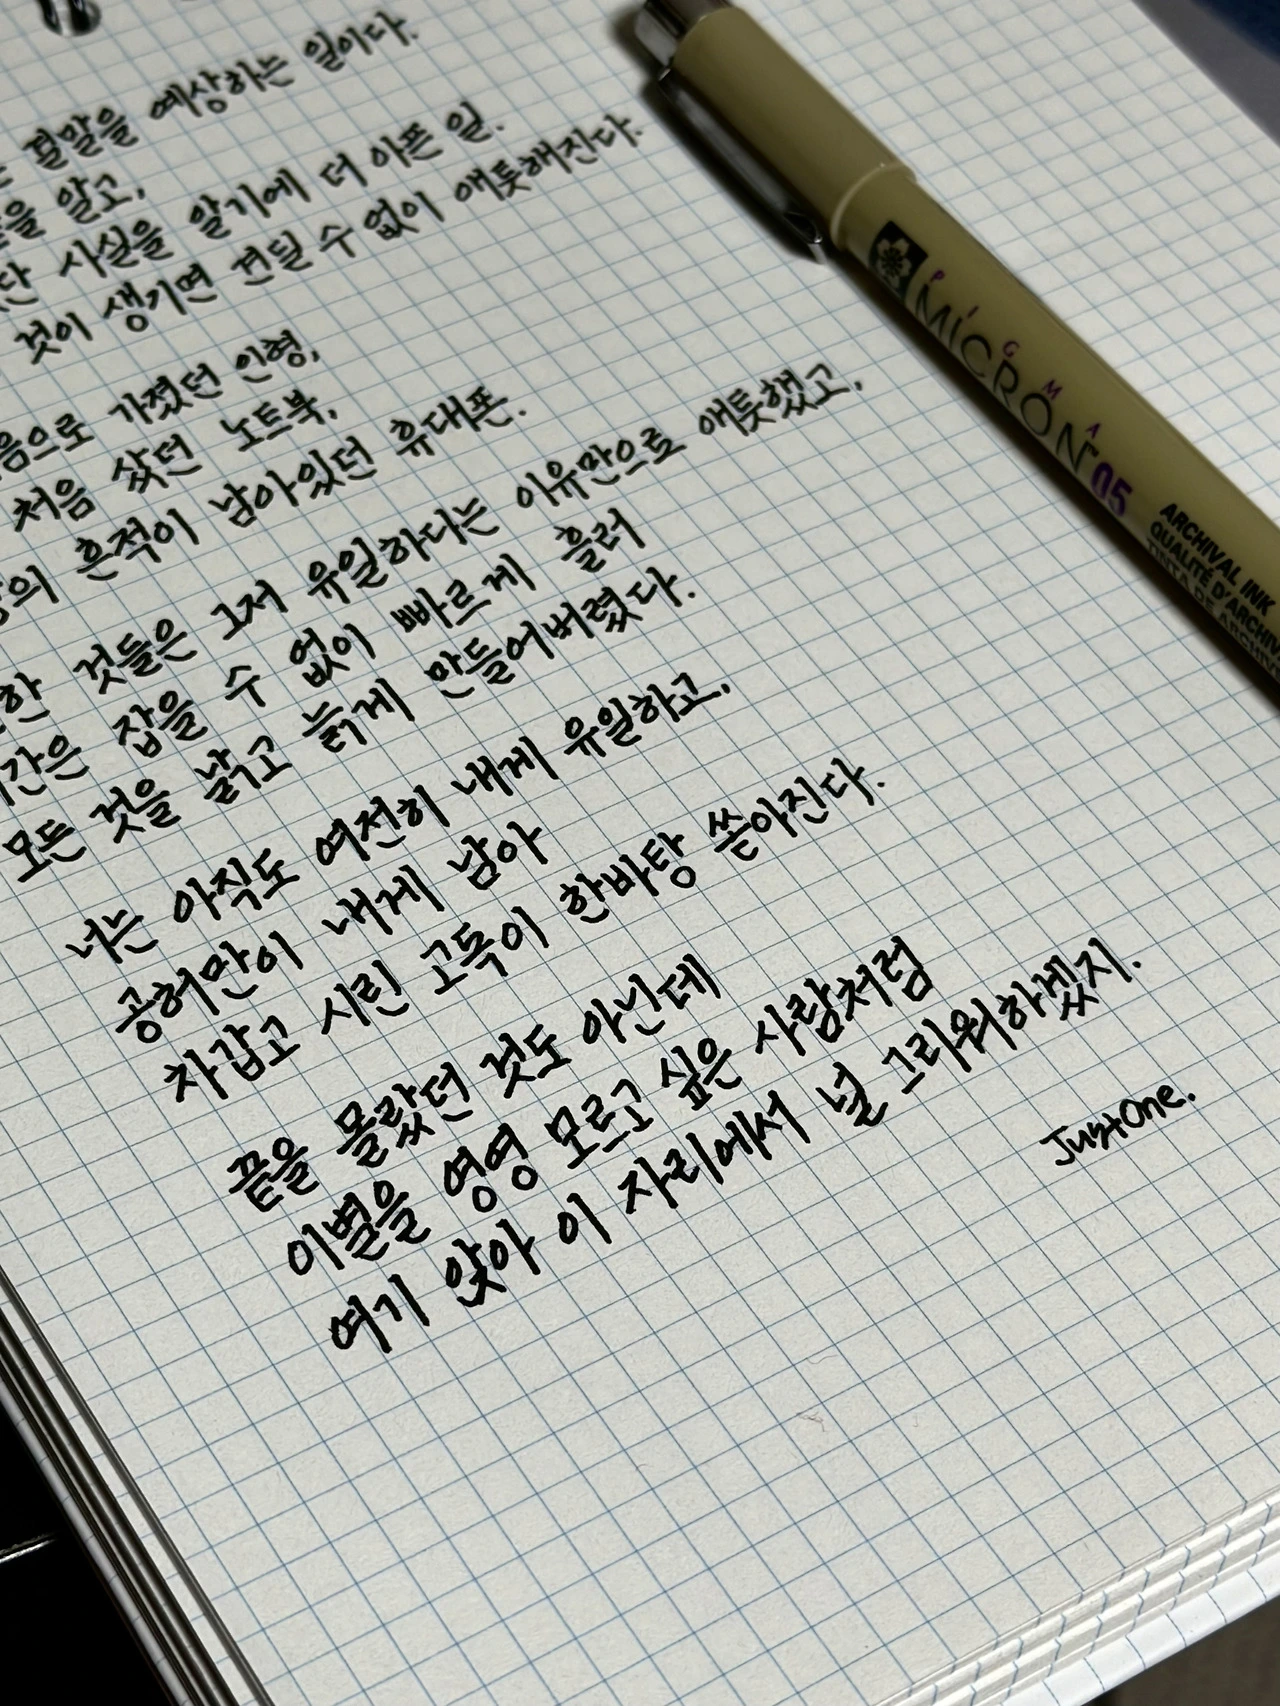 결말을 예상하는 일이다.
알고,
사실을 알기에 더 아픈 일.
것이 생기면 견딜 수 없이 애틋해진다.
가졌던 인형,
처음 샀던 노트북,
흔적이 남아있던 휴대폰.
것들은 그저 유일하다는 이유만으로 애틋했고,
잡을 수 없이 빠르게 흘러
모든 것을 낡고 늙게 만들어버렸다.
너는 아직도 여전히 내게 유일하고,
공허만이 내게 남아
차갑고 시린 고독이 한바탕 쏟아진다.
끝을 몰랐던 것도 아닌데
이별을 영영 모르고 싶은 사람처럼
여기 앉아 이 자리에서 널 그리워하겠지.
JustOne.
PIGMA
MICRON 05
ARCHIVAL INK
QUALITÉ D'ARCHIV
TINTA DE ARCHIV